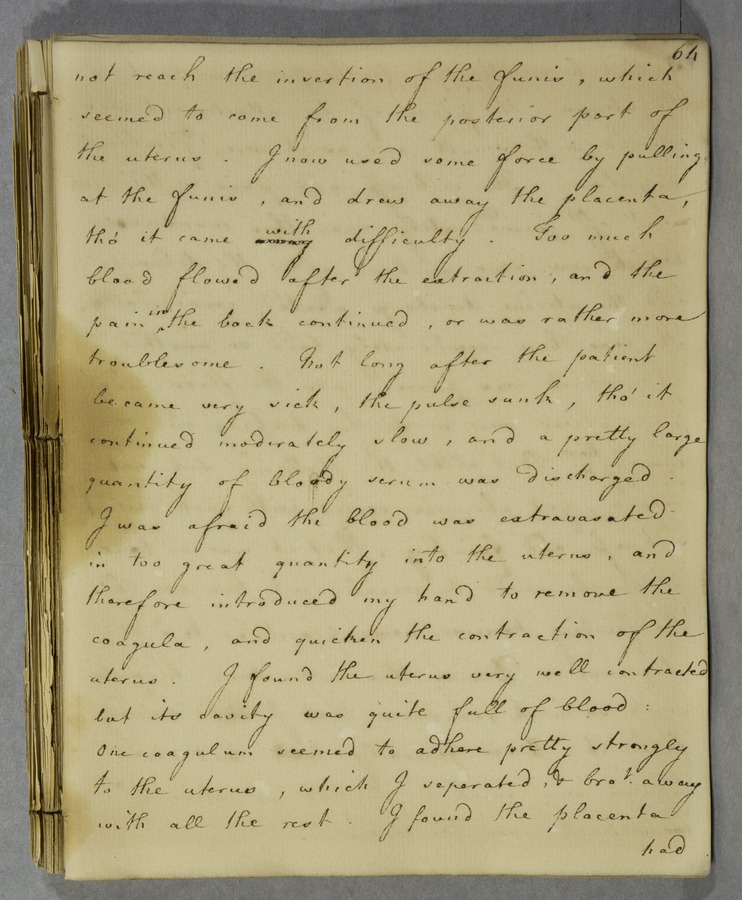 64
not reach the insertion of the funis, which
seemed to come from the posterior part of
the uterus. I now used some force by pulling
at the funis, and drew away the placenta,
tho' it came with difficulty. Too much
blood flowed after the extraction, and the
pain in the back continued, or was rather more
troublesome. Not long after the patient
became very sick, the pulse sunk, tho' it
continued moderately slow, and a pretty large
quantity of bloody serum was discharged.
I was afraid the blood was extravasated
in too great quantity into the uterus, and
therefore introduced my hand to remove the
coagula, and quicken the contraction of the
uterus. I found the uterus very well contracted
but its cavity was quite full of blood:
One coagulum seemed to adhere pretty strongly
to the uterus, which I seperated, & bro't away
with all the rest. I found the placenta
had